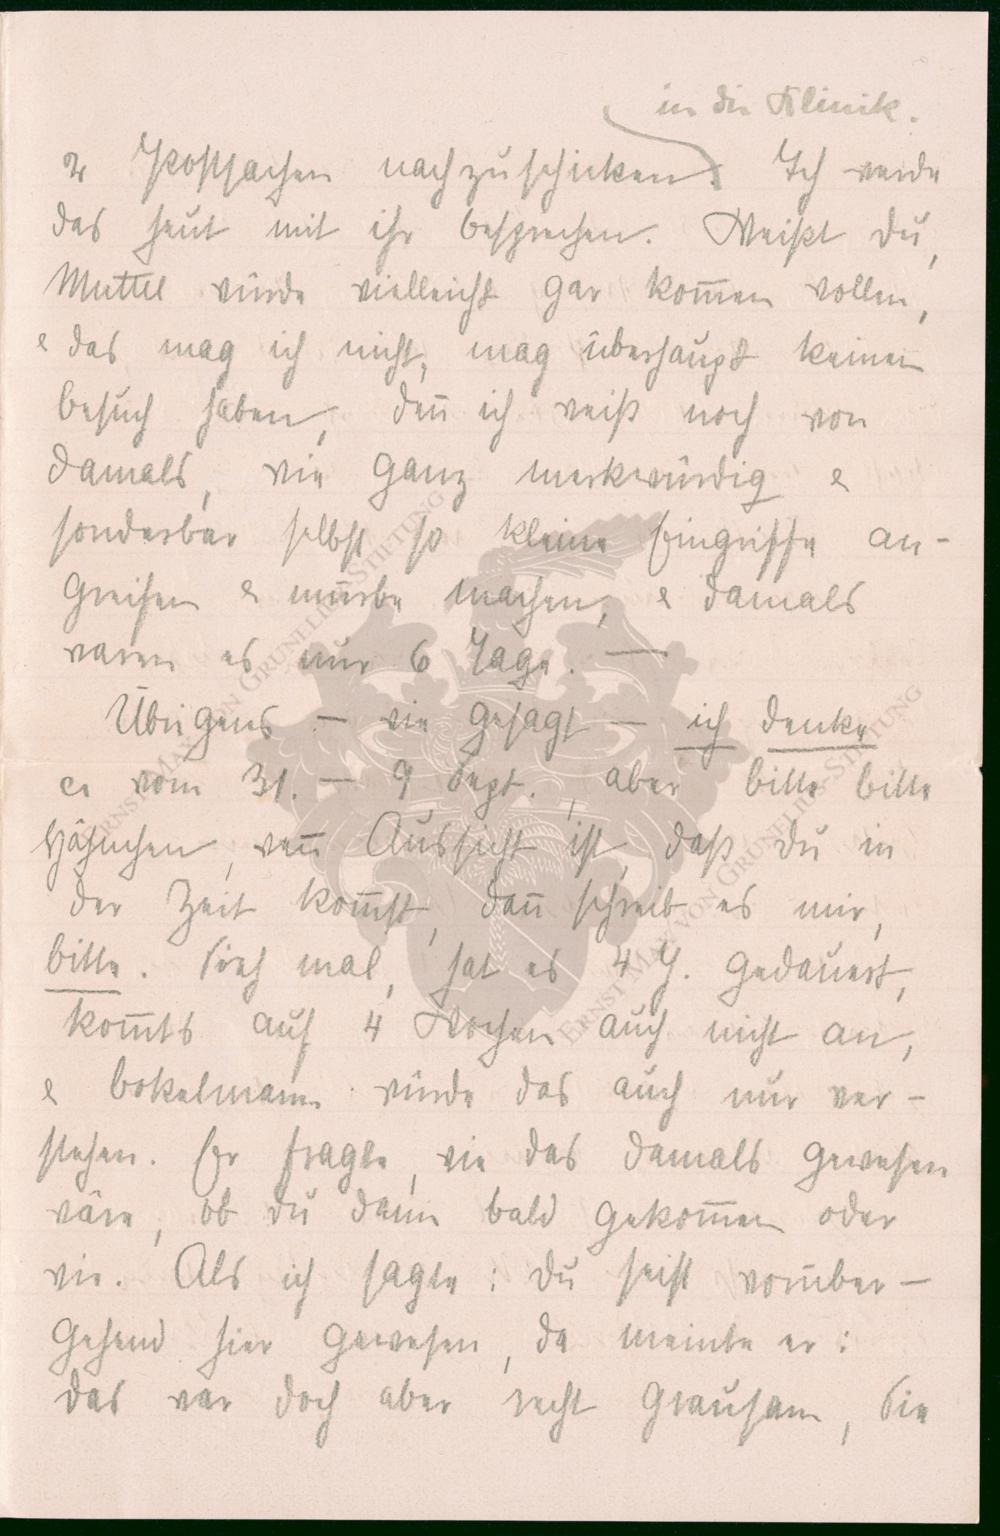 in die Klinik.
2 Postsachen nachzuschicken. Ich werde
das heut mit ihr besprechen. Weißt Du,
Muttel würde vielleicht gar kom̅en wollen,
& das mag ich nicht, mag überhaupt keinen
besuch haben, den̅ ich weiß noch von
damals, wie ganz merkwürdig &
sonderbar selbst so kleine Eingriffe an-
greifen & mürbe machen, & damals
waren es nur 6 Tage. —
Übrigens – wie gesagt – ich denke
vom 31. – 9 Sept., aber bitte bitte
wen̅ Aussicht ist, daß Du in
der Zeit kom̅st, dan̅ schreib es mir,
bitte. Sieh mal, hat es 4 J. gedauert,
kom̅ts auf 4 Wochen auch nicht an,
& bokelmann würde das auch nur ver-
stehen. Er fragte, wie das damals gewesen
wäre, ob Du dann bald gekom̅en oder
wie. Als ich sagte: Du seist vorüber-
gehend hier gewesen, da meinte er:
das war doch aber recht grausam, Sie
ERNST MAX VON GRUNELIUS-STIFTUNG
ERNST MAX VON GRUNELIUS-STIFTUNG